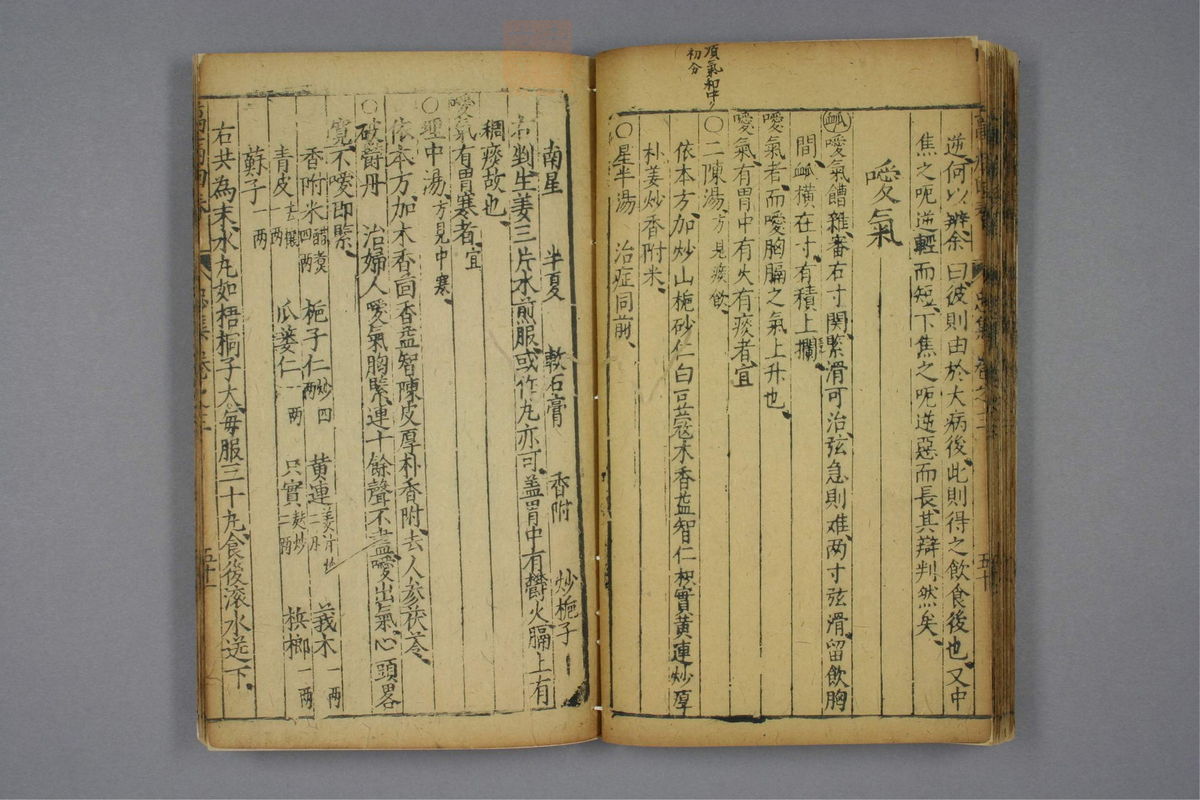 逆何以辨余曰彼則由於大病後此則得之飲食後也又中
焦之呃逆輕而短下焦之呃逆惡而長其辯判然矣
噯氣
噯氣饐雜審右寸関緊滑可治弦急則难两寸弦滑留飲胸
間橫在寸有積上攔
噯氣者而噯胸膈之氣上升也
噯氣有胃中有火有痰者宜
○二陳湯方見痰飲
依本方加炒山梔砂仁白豆蔻木香益智仁枳實黃連炒厚
朴姜炒香附米
○星半湯 治症同前
項氣和中
初分
五十
南星 半夏 軟石膏 香附 炒梔子
右剉生姜三片水煎服或作丸亦可盖胃中有欝火膈上有
稠痰故也
噯氣有胃寒者宜
○理中湯方見中寒
依本方加木香茴香益智陳皮厚朴香附去人参茯苓
破欝丹 治婦人噯氣胸緊連十餘聲不盡噯出氣心頭畧
寬不噯即緊
香附米醋煑四两 梔子仁炒四两 黄連姜汁炒二两 莪术一两
青皮去穰一两 瓜蔞仁一两 只實麸炒一两 梹榔一两
蘇子一两
右共為末水丸如梧桐子大每服三十丸食後滚水送下
五十一